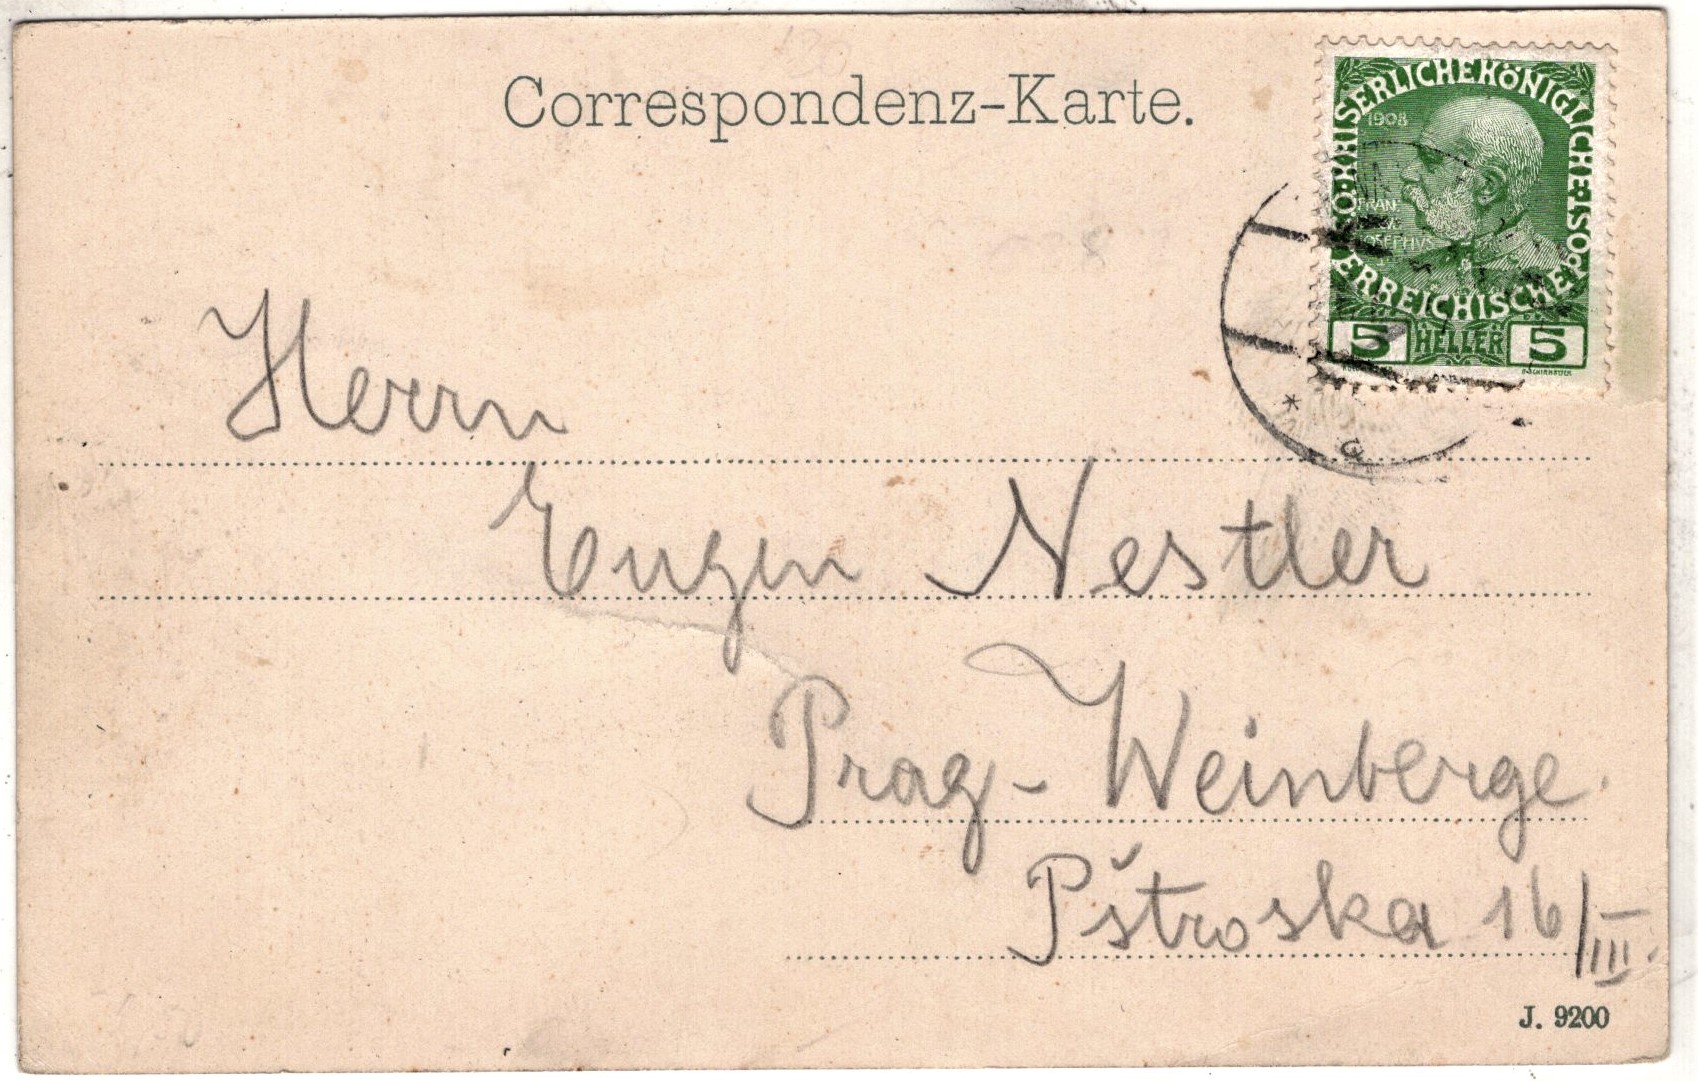 Correspondenz-Karte.
KAISERLICHE KÖNIGLICHE
ÖSTERREICHISCHE POST
1908
FRAN
IOSEPHVS
5 HELLER 5
Herrn
Eugen Nestler
Prag-Weinberge.
Pštroska 16/III.
J. 9200